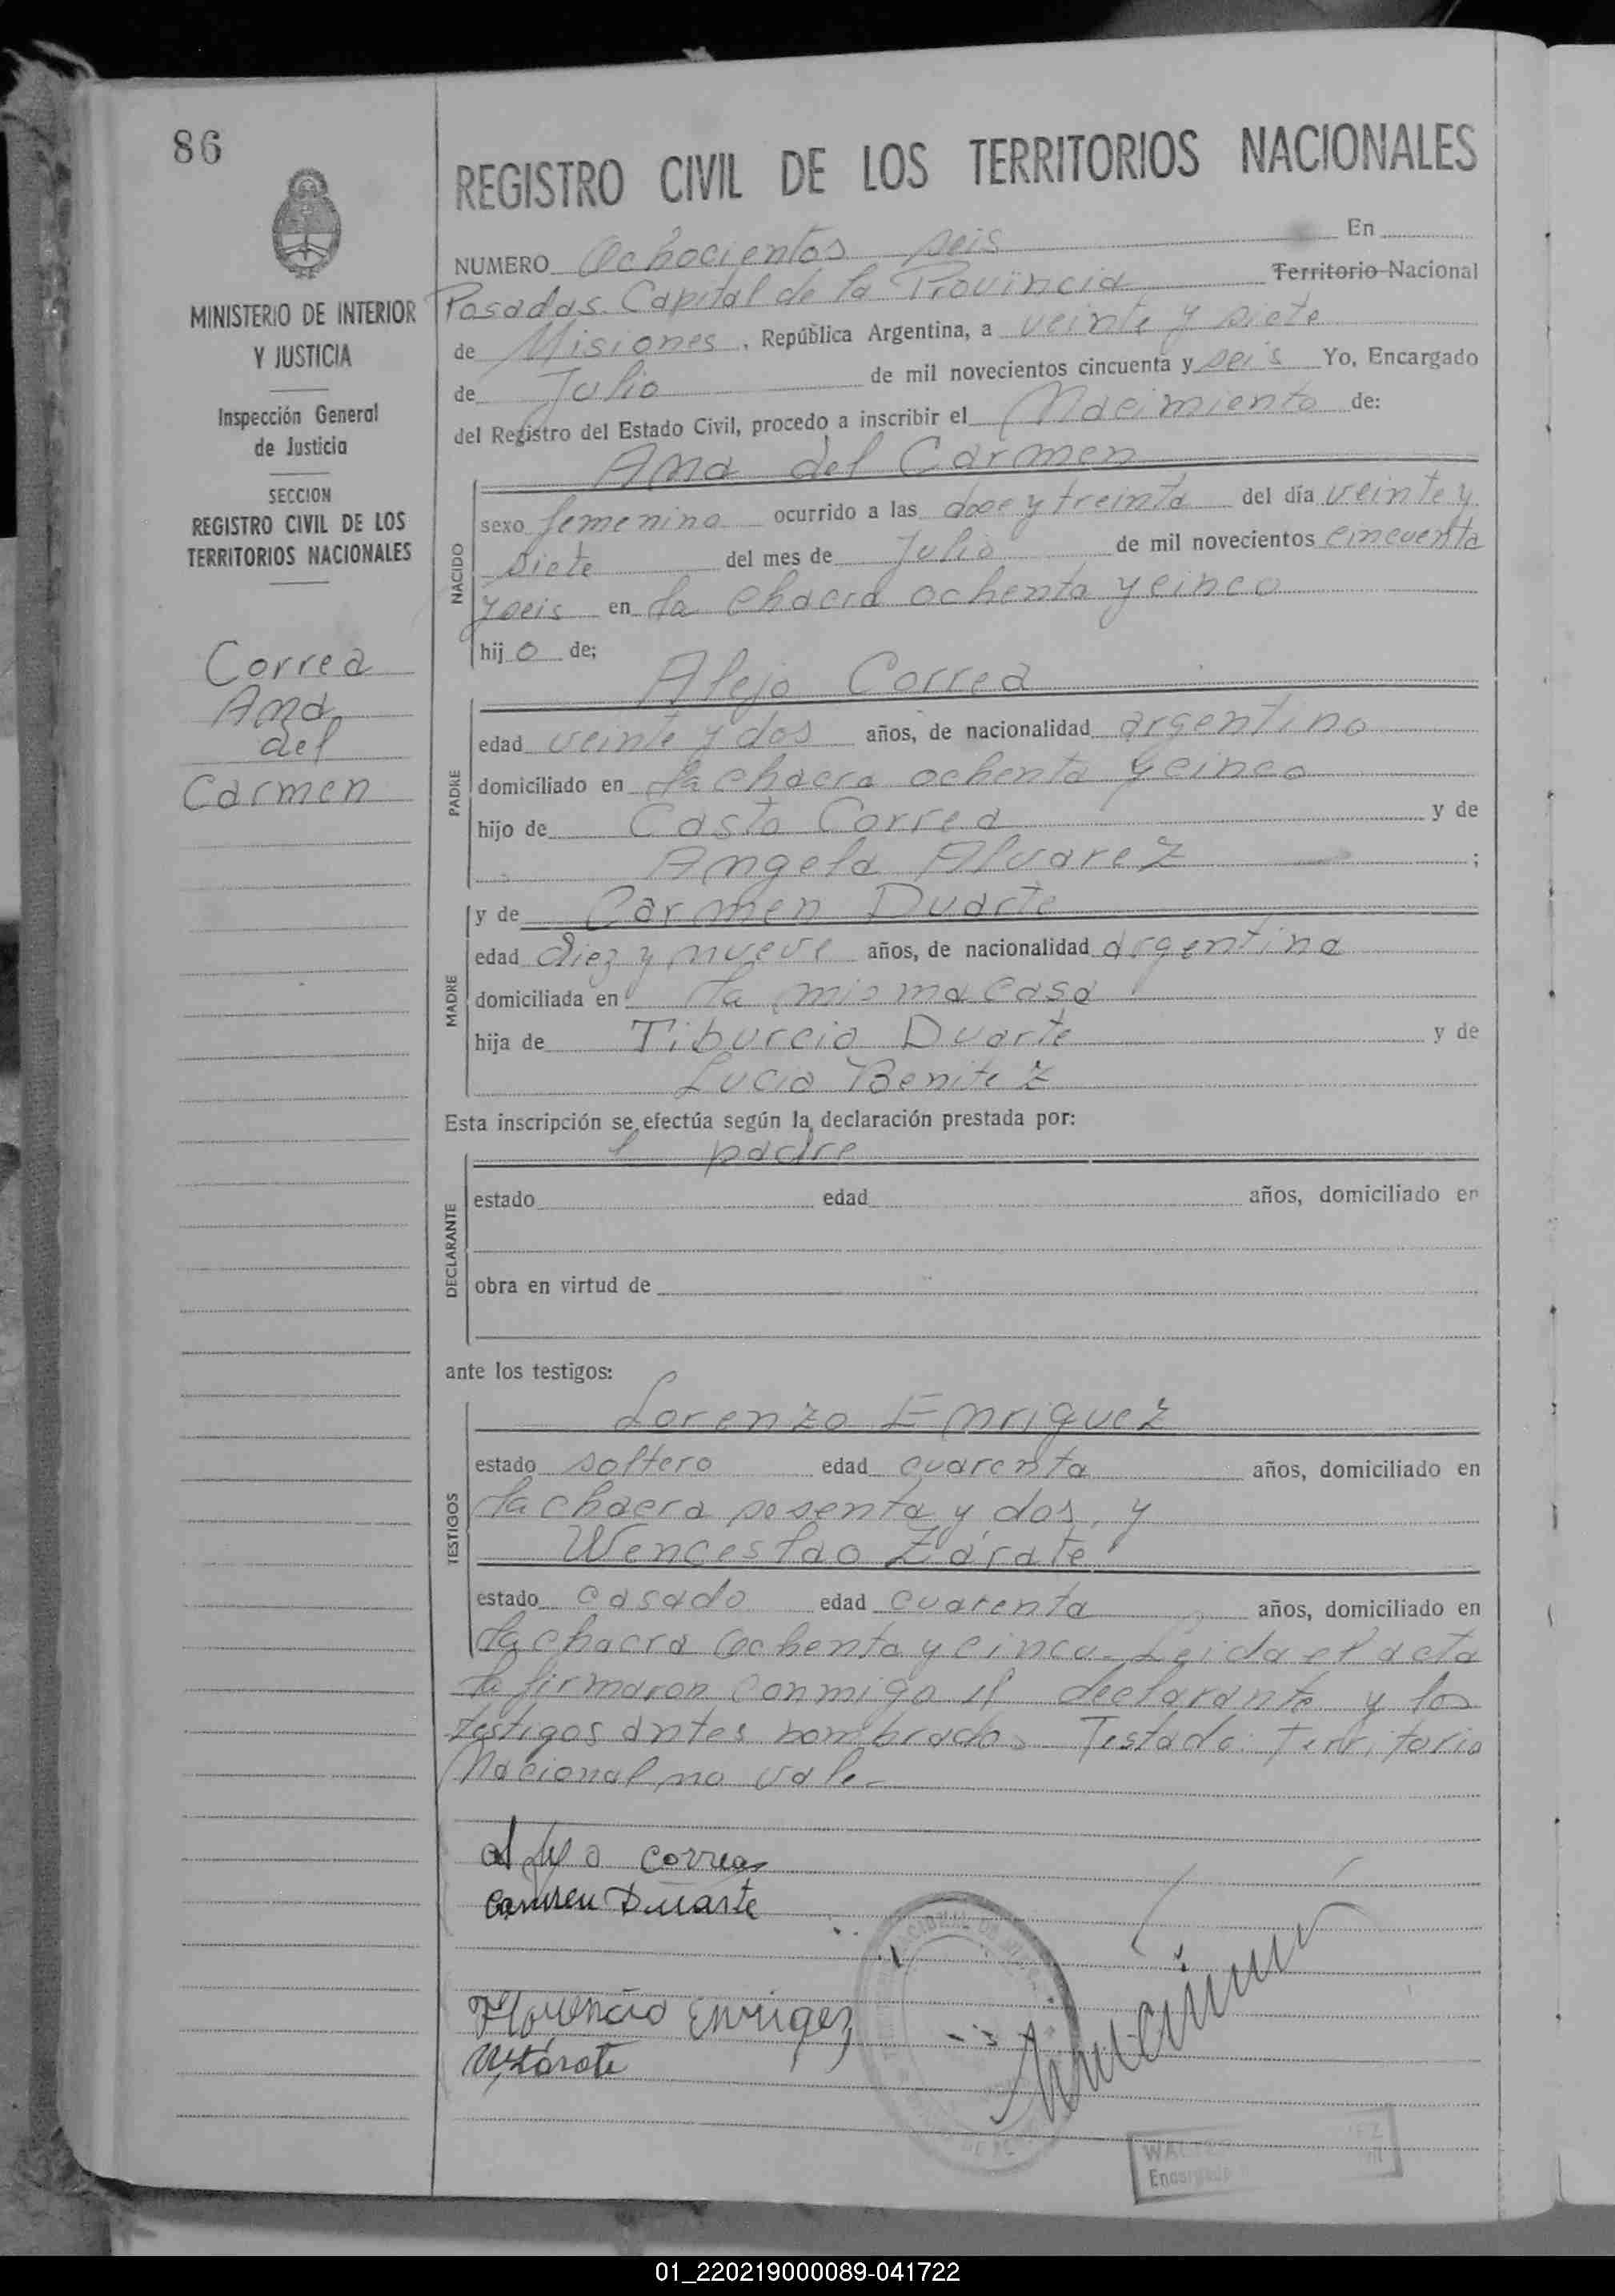 86
REGISTRO CIVIL DE LOS TERRITORIOS NACIONALES
MINISTERIO DE INTERIOR
Y JUSTICIA
Inspección General
de Justicia
SECCION
REGISTRO CIVIL DE LOS
TERRITORIOS NACIONALES
Correa
Ana
del
Carmen
NUMERO Ochocientos seis En
Posadas. Capital de la Provincia Territorio Nacional
de Misiones, República Argentina, a veinte y siete
de Julio de mil novecientos cincuenta y seis Yo, Encargado
del Registro del Estado Civil, procedo a inscribir el Nacimiento de:
Ana del Carmen
NACIDO
sexo femenino ocurrido a las doce y treinta del día veinte y
siete del mes de Julio de mil novecientos cincuenta
y seis en la chacra ochenta y cinco
hijo de;
Alejo Correa
PADRE
edad veinte y dos años, de nacionalidad argentino
domiciliado en la chacra ochenta y cinco
hijo de Casto Correa y de
Angela Alvarez ;
MADRE
y de Carmen Duarte
edad diez y nueve años, de nacionalidad argentina
domiciliada en la misma casa
hija de Tiburcio Duarte y de
Lucia Benitez
Esta inscripción se efectúa según la declaración prestada por:
l padre
DECLARANTE
estado edad años, domiciliado en
obra en virtud de
ante los testigos:
TESTIGOS
Lorenzo Enriquez
estado soltero edad cuarenta años, domiciliado en
la chacra sesenta y dos, y
Wenceslao Zárate
estado casado edad cuarenta años, domiciliado en
la chacra ochenta y cinco. Leida el acta
la firmaron conmigo el declarante y los
testigos antes nombrados Testado: Territorio
Nacional no vale.
Alejo Correa
Carmen Duarte
Florencio Enrigez
WZárate
Encargado
01_220219000089-041722